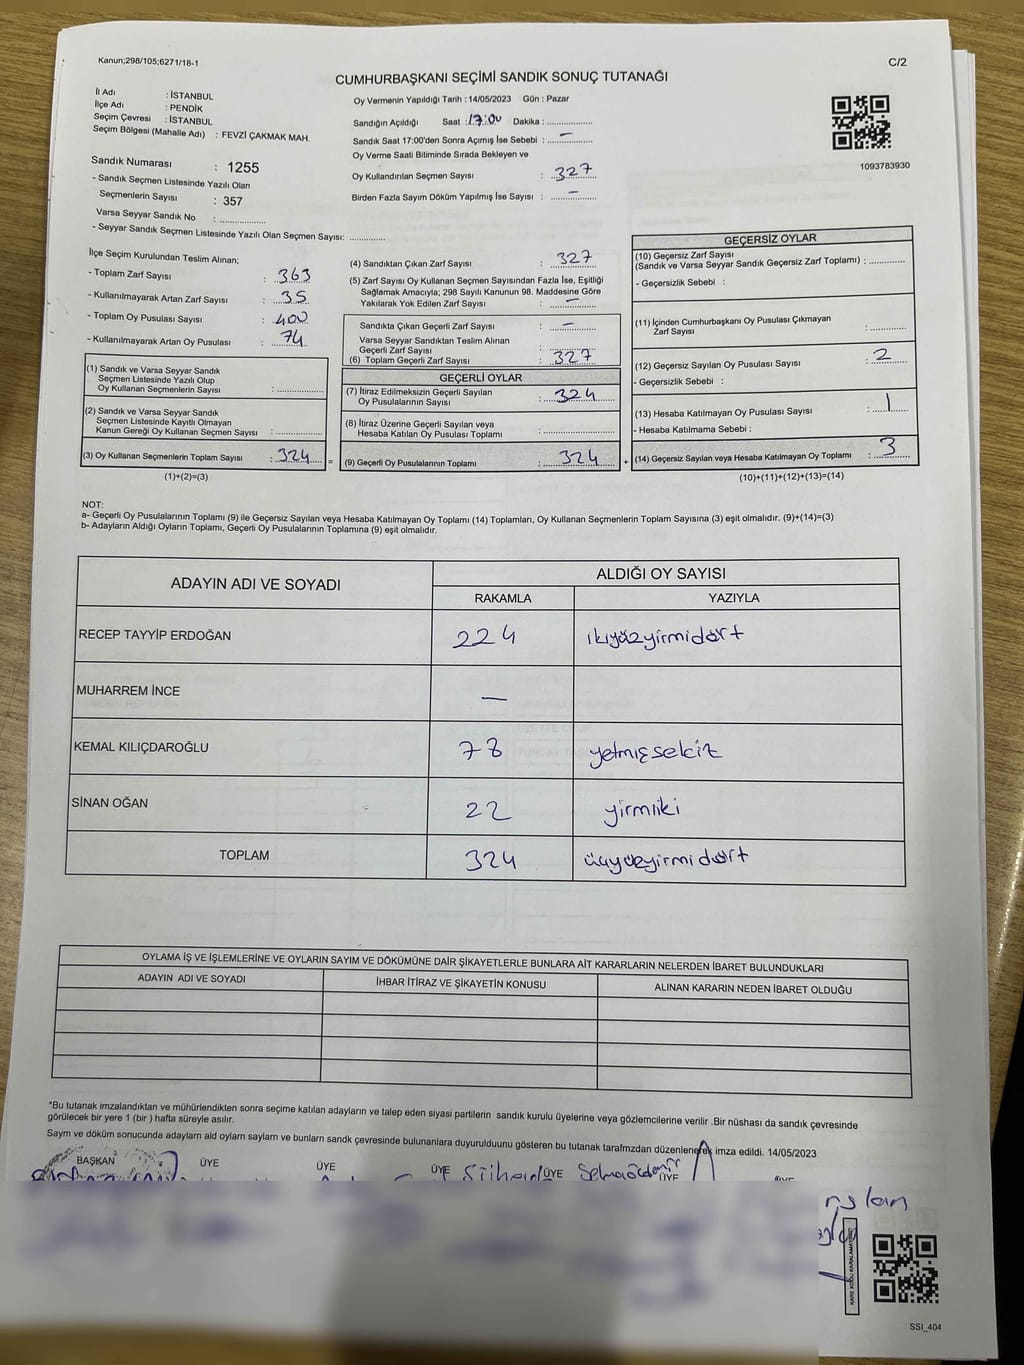 Kanun;298/105;6271/18-1
C/2
CUMHURBAŞKANI SEÇİMİ SANDIK SONUÇ TUTANAĞI
İl Adı : İSTANBUL
İlçe Adı : PENDİK
Seçim Çevresi : İSTANBUL
Seçim Bölgesi (Mahalle Adı) : FEVZİ ÇAKMAK MAH.
Sandık Numarası : 1255
- Sandık Seçmen Listesinde Yazılı Olan
Seçmenlerin Sayısı : 357
Varsa Seyyar Sandık No : ..............
- Seyyar Sandık Seçmen Listesinde Yazılı Olan Seçmen Sayısı: ............
Oy Vermenin Yapıldığı Tarih : 14/05/2023 Gün : Pazar
Sandığın Açıldığı Saat : 17:00 Dakika : ..............
Sandık Saat 17:00'den Sonra Açımış İse Sebebi : —
Oy Verme Saati Bitiminde Sırada Bekleyen ve
Oy Kullandırılan Seçmen Sayısı : 327
Birden Fazla Sayım Döküm Yapılmış İse Sayısı : —
1093783930
İlçe Seçim Kurulundan Teslim Alınan;
- Toplam Zarf Sayısı : 363
- Kullanılmayarak Artan Zarf Sayısı : 35
- Toplam Oy Pusulası Sayısı : 400
- Kullanılmayarak Artan Oy Pusulası : 74
(1) Sandık ve Varsa Seyyar Sandık
Seçmen Listesinde Yazılı Olup
Oy Kullanan Seçmenlerin Sayısı : ..............
(2) Sandık ve Varsa Seyyar Sandık
Seçmen Listesinde Kayıtlı Olmayan
Kanun Gereği Oy Kullanan Seçmen Sayısı : ..............
(3) Oy Kullanan Seçmenlerin Toplam Sayısı : 324 =
(1)+(2)=(3)
(4) Sandıktan Çıkan Zarf Sayısı : 327
(5) Zarf Sayısı Oy Kullanan Seçmen Sayısından Fazla İse, Eşitliği
Sağlamak Amacıyla; 298 Sayılı Kanunun 98. Maddesine Göre
Yakılarak Yok Edilen Zarf Sayısı : —
Sandıkta Çıkan Geçerli Zarf Sayısı : —
Varsa Seyyar Sandıktan Teslim Alınan
Geçerli Zarf Sayısı :
(6) Toplam Geçerli Zarf Sayısı : 327
GEÇERLİ OYLAR
(7) İtiraz Edilmeksizin Geçerli Sayılan
Oy Pusulalarının Sayısı : 324
(8) İtiraz Üzerine Geçerli Sayılan veya
Hesaba Katılan Oy Pusulası Toplamı : ..............
(9) Geçerli Oy Pusulalarının Toplamı : 324 +
GEÇERSİZ OYLAR
(10) Geçersiz Zarf Sayısı
(Sandık ve Varsa Seyyar Sandık Geçersiz Zarf Toplamı) : ............
- Geçersizlik Sebebi :
(11) İçinden Cumhurbaşkanı Oy Pusulası Çıkmayan
Zarf Sayısı : ............
(12) Geçersiz Sayılan Oy Pusulası Sayısı : 2
- Geçersizlik Sebebi :
(13) Hesaba Katılmayan Oy Pusulası Sayısı : 1
- Hesaba Katılmama Sebebi :
(14) Geçersiz Sayılan veya Hesaba Katılmayan Oy Toplamı : 3
(10)+(11)+(12)+(13)=(14)
NOT:
a- Geçerli Oy Pusulalarının Toplamı (9) ile Geçersiz Sayılan veya Hesaba Katılmayan Oy Toplamı (14) Toplamları, Oy Kullanan Seçmenlerin Toplam Sayısına (3) eşit olmalıdır. (9)+(14)=(3)
b- Adayların Aldığı Oyların Toplamı, Geçerli Oy Pusulalarının Toplamına (9) eşit olmalıdır.
ADAYIN ADI VE SOYADI ALDIĞI OY SAYISI
RAKAMLA YAZIYLA
RECEP TAYYİP ERDOĞAN 224 ikiyüzyirmidört
MUHARREM İNCE —
KEMAL KILIÇDAROĞLU 78 yetmişsekiz
SİNAN OĞAN 22 yirmiiki
TOPLAM 324 üçyüzyirmidört
OYLAMA İŞ VE İŞLEMLERİNE VE OYLARIN SAYIM VE DÖKÜMÜNE DAİR ŞİKAYETLERLE BUNLARA AİT KARARLARIN NELERDEN İBARET BULUNDUKLARI
ADAYIN ADI VE SOYADI İHBAR İTİRAZ VE ŞİKAYETİN KONUSU ALINAN KARARIN NEDEN İBARET OLDUĞU
*Bu tutanak imzalandıktan ve mühürlendikten sonra seçime katılan adayların ve talep eden siyasi partilerin sandık kurulu üyelerine veya gözlemcilerine verilir .Bir nüshası da sandık çevresinde
görülecek bir yere 1 (bir ) hafta süreyle asılır.
Sayım ve döküm sonucunda adayların ald oyların sayların ve bunların sandık çevresinde bulunanlara duyurulduunu gösteren bu tutanak tarafmzdan düzenlenerek imza edildi. 14/05/2023
BAŞKAN ÜYE ÜYE ÜYE ÜYE ÜYE ÜYE
SSI_404